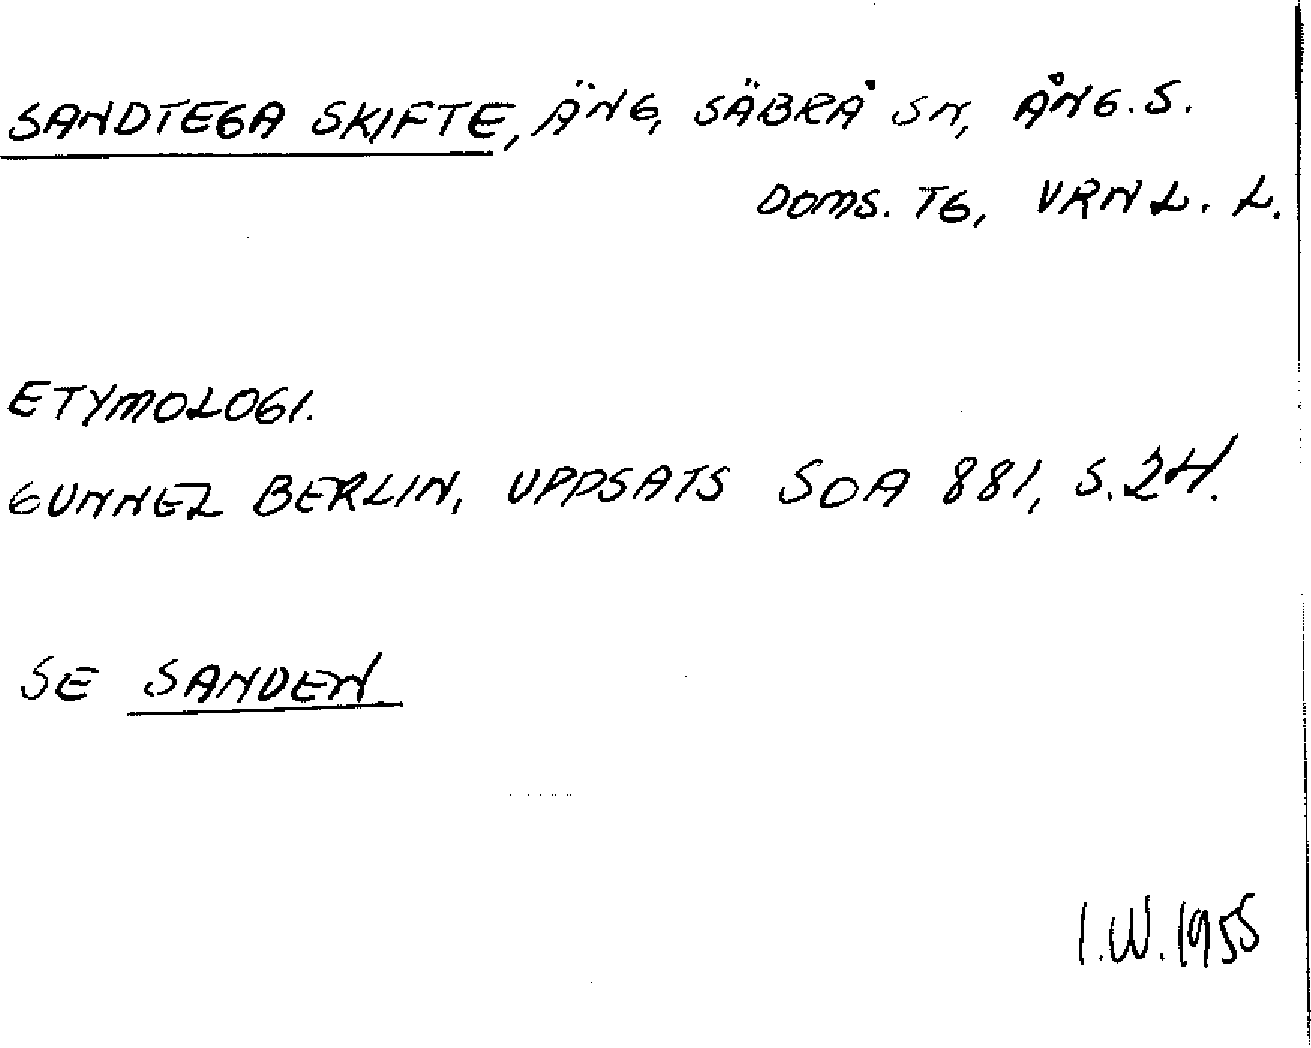 SANDTEGA SKIFTE, ÄNG, SÄBRÅ SN, ÅNG.S.
DOMS. TG, VRNL. L.
ETYMOLOGI.
GUNNEL BERLIN, UPPSATS SOA 881, S.24.
SE SANDEN
I.W. 1955